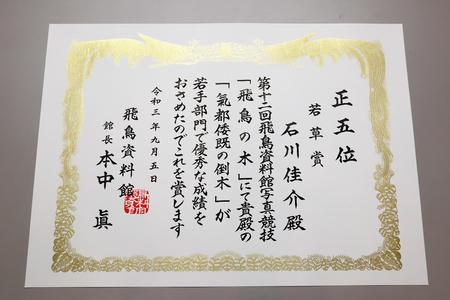 正五位
若草賞
石川佳介殿
第十二回飛鳥資料館写真競技
「飛鳥の木」にて貴殿の
「氣都倭既の倒木」が
若手部門で優秀な成績を
おさめたのでこれを賞します
令和三年九月五日
飛鳥資料館
館長 本中 眞